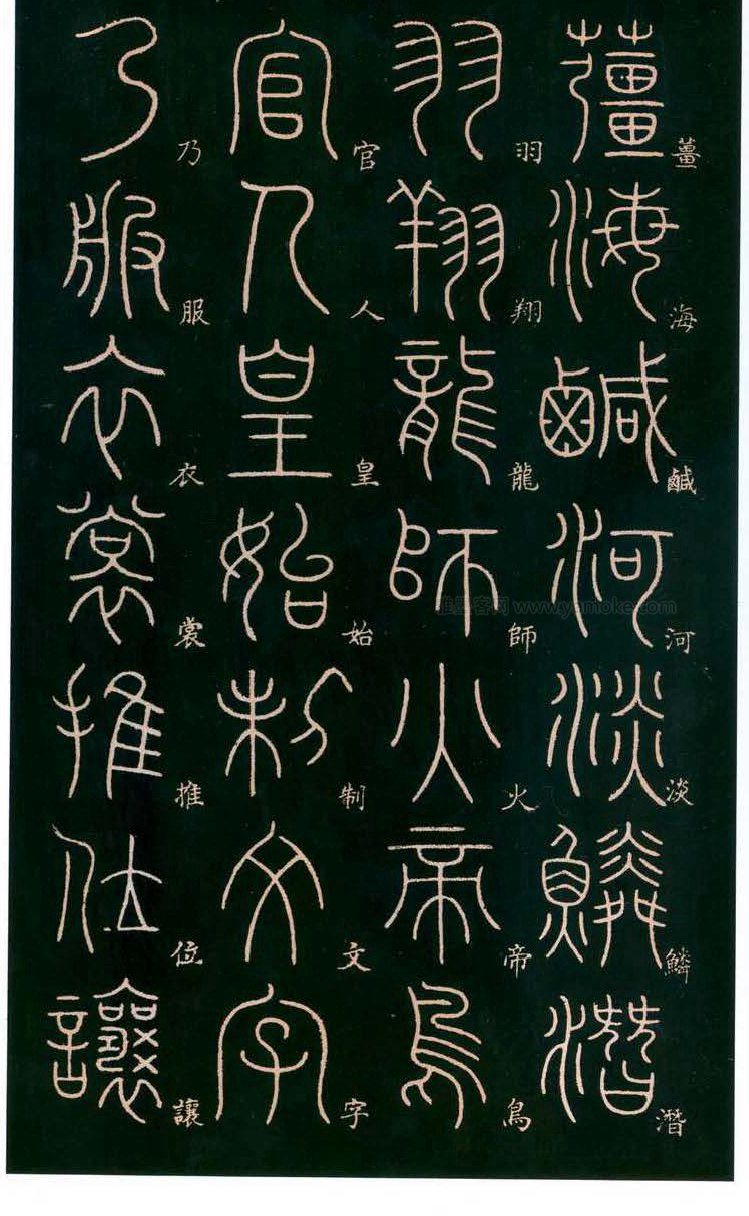 薑海鹹河淡鱗潛
羽翔龍師火帝鳥
官人皇始制文字
乃服衣裳推位讓
雅墨客网 www.yamoke.com